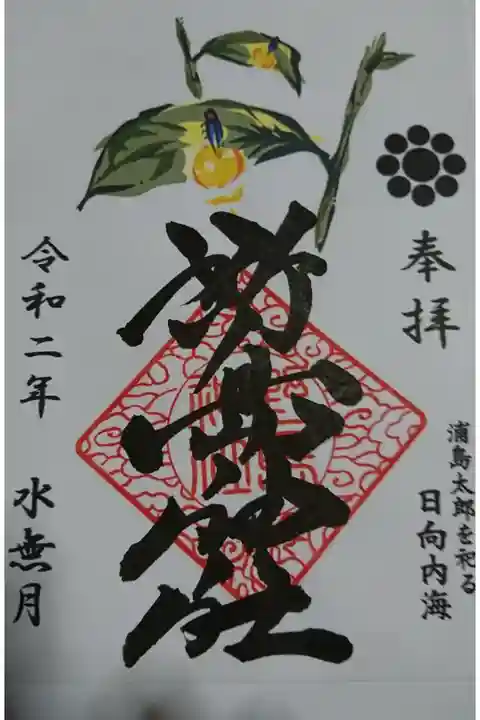 奉拝
浦島太郎を祀る
日向内海
野島神社
令和二年　水無月